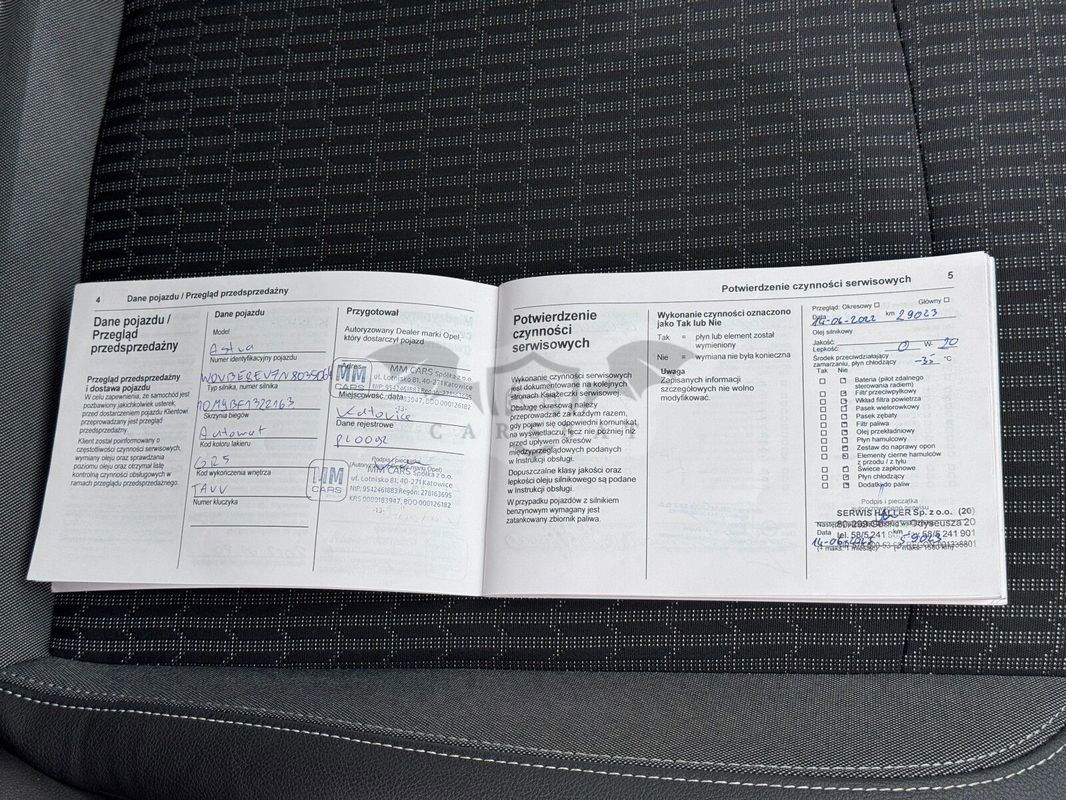 4 Dane pojazdu / Przegląd przedsprzedażny
Dane pojazdu /
Przegląd
przedsprzedażny
Przegląd przedsprzedażny
i dostawa pojazdu
W celu zapewnienia, że samochód jest
pozbawiony jakichkolwiek usterek,
przed dostarczeniem pojazdu Klientowi
przeprowadzany jest przegląd
przedsprzedażny.
Klient został poinformowany o
częstotliwości czynności serwisowych,
wymiany oleju oraz sprawdzania
poziomu oleju oraz otrzymał listę
kontrolną czynności obsługowych w
ramach przeglądu przedsprzedażnego.
Dane pojazdu
Model
Astra
Numer identyfikacyjny pojazdu
Typ silnika, numer silnika
Skrzynia biegów
Automat
Kod koloru lakieru
GR5
Kod wykończenia wnętrza
TAVV
Numer kluczyka
Przygotował
Autoryzowany Dealer marki Opel,
który dostarczył pojazd
MM CARS Spółka z o.o.
ul. Lotnisko 81, 40-271 Katowice
MM
CARS
Miejscowość, data
Katowice
Dane rejestrowe
PL0092
MM CARS Spółka z o.o.
ul. Lotnisko 81, 40-271 Katowice
NIP: 9542461883 Regon: 278163695
KRS 0000183947, BDO 000126182
-13-
MM
CARS
CAR
Potwierdzenie czynności serwisowych 5
Potwierdzenie
czynności
serwisowych
Wykonanie czynności serwisowych
jest dokumentowane na kolejnych
stronach Książeczki serwisowej.
Obsługę okresową należy
przeprowadzać za każdym razem,
gdy pojawi się odpowiedni komunikat
na wyświetlaczu, lecz nie później niż
przed upływem okresów
międzyprzeglądowych podanych
w Instrukcji obsługi.
Dopuszczalne klasy jakości oraz
lepkości oleju silnikowego są podane
w Instrukcji obsługi.
W przypadku pojazdów z silnikiem
benzynowym wymagany jest
zatankowany zbiornik paliwa.
Wykonanie czynności oznaczono
jako Tak lub Nie
Tak = płyn lub element został
wymieniony
Nie = wymiana nie była konieczna
Uwaga
Zapisanych informacji
szczegółowych nie wolno
modyfikować.
Przegląd: Okresowy Główny
Data 14-06-2022 km 29023
Olej silnikowy
Jakość:
Lepkość: 0 W- 20
Środek przeciwdziałający
zamarzaniu, płyn chłodzący -35 °C
Tak Nie
Bateria (pilot zdalnego
sterowania radiem)
Filtr przeciwpyłkowy
Wkład filtra powietrza
Pasek wielorowkowy
Pasek zębaty
Filtr paliwa
Olej przekładniowy
Płyn hamulcowy
Zestaw do naprawy opon
Elementy cierne hamulców
z przodu / z tyłu
Świece zapłonowe
Płyn chłodzący
Dodatki do paliw
Podpis i pieczątka
SERWIS HALLER Sp. z o.o. (20)
Odyseusza 20
tel. 58/5 241 901
Data km
59023